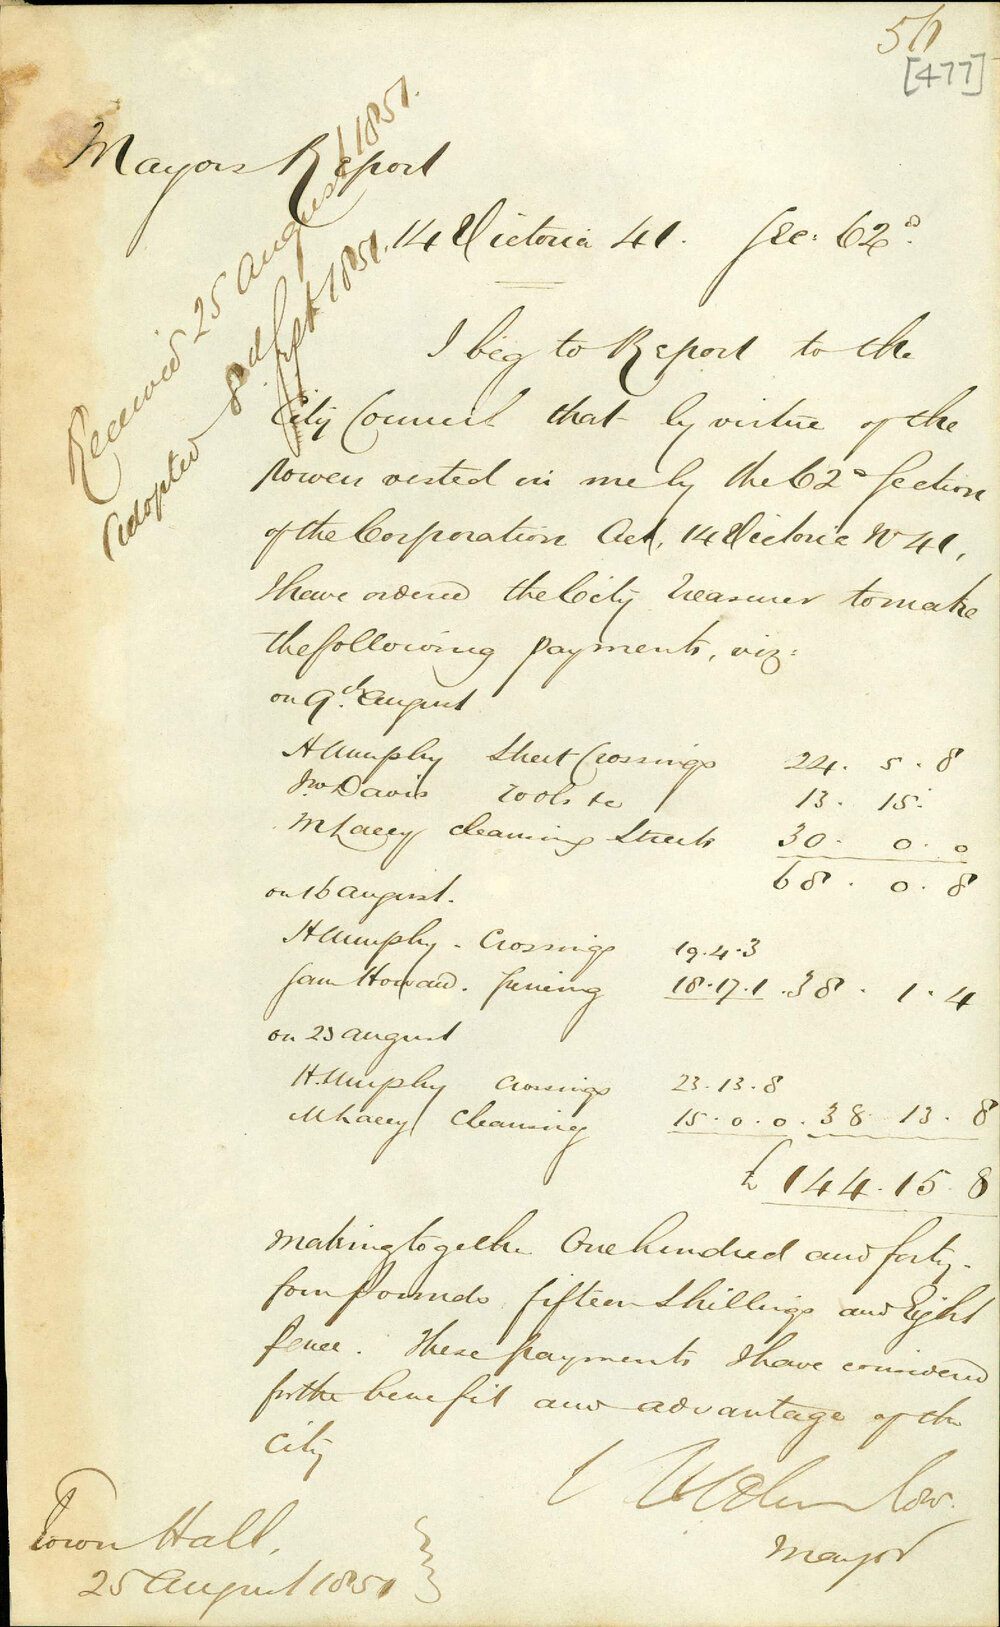 56
[477]
Mayors Report
Received 25 August 1851.
Adopted 8d Sept 1851.
14 Victoria 41. Sec: 62d.
I beg to Report to the
City Council that by virtue of the
powers vested in me by the 62d Section
of the Corporation Act, 14 Victoria No 41,
I have ordered the City Treasurer to make
the following payments, viz:
on 9th August
H Murphy Street Crossings 24. 5. 8
Jno Davis Tools &c 13. 15.
M Lacey cleansing Streets 30. 0. 0
68. 0. 8
on 16 August.
H Murphy. Crossings 19.4.3
Sam Howard. 18.17.1. 38. 1. 4
on 23 August
H. Murphy Crossings 23.13.8
M Lacey Cleansing 15.0.0. 38 13. 8
£144.15.8
making together One hundred and forty-
four Pounds fifteen Shillings and Eight
pence. These payments I have considered
for the benefit and advantage of the
City
Mayor
Town Hall,
25 August 1851